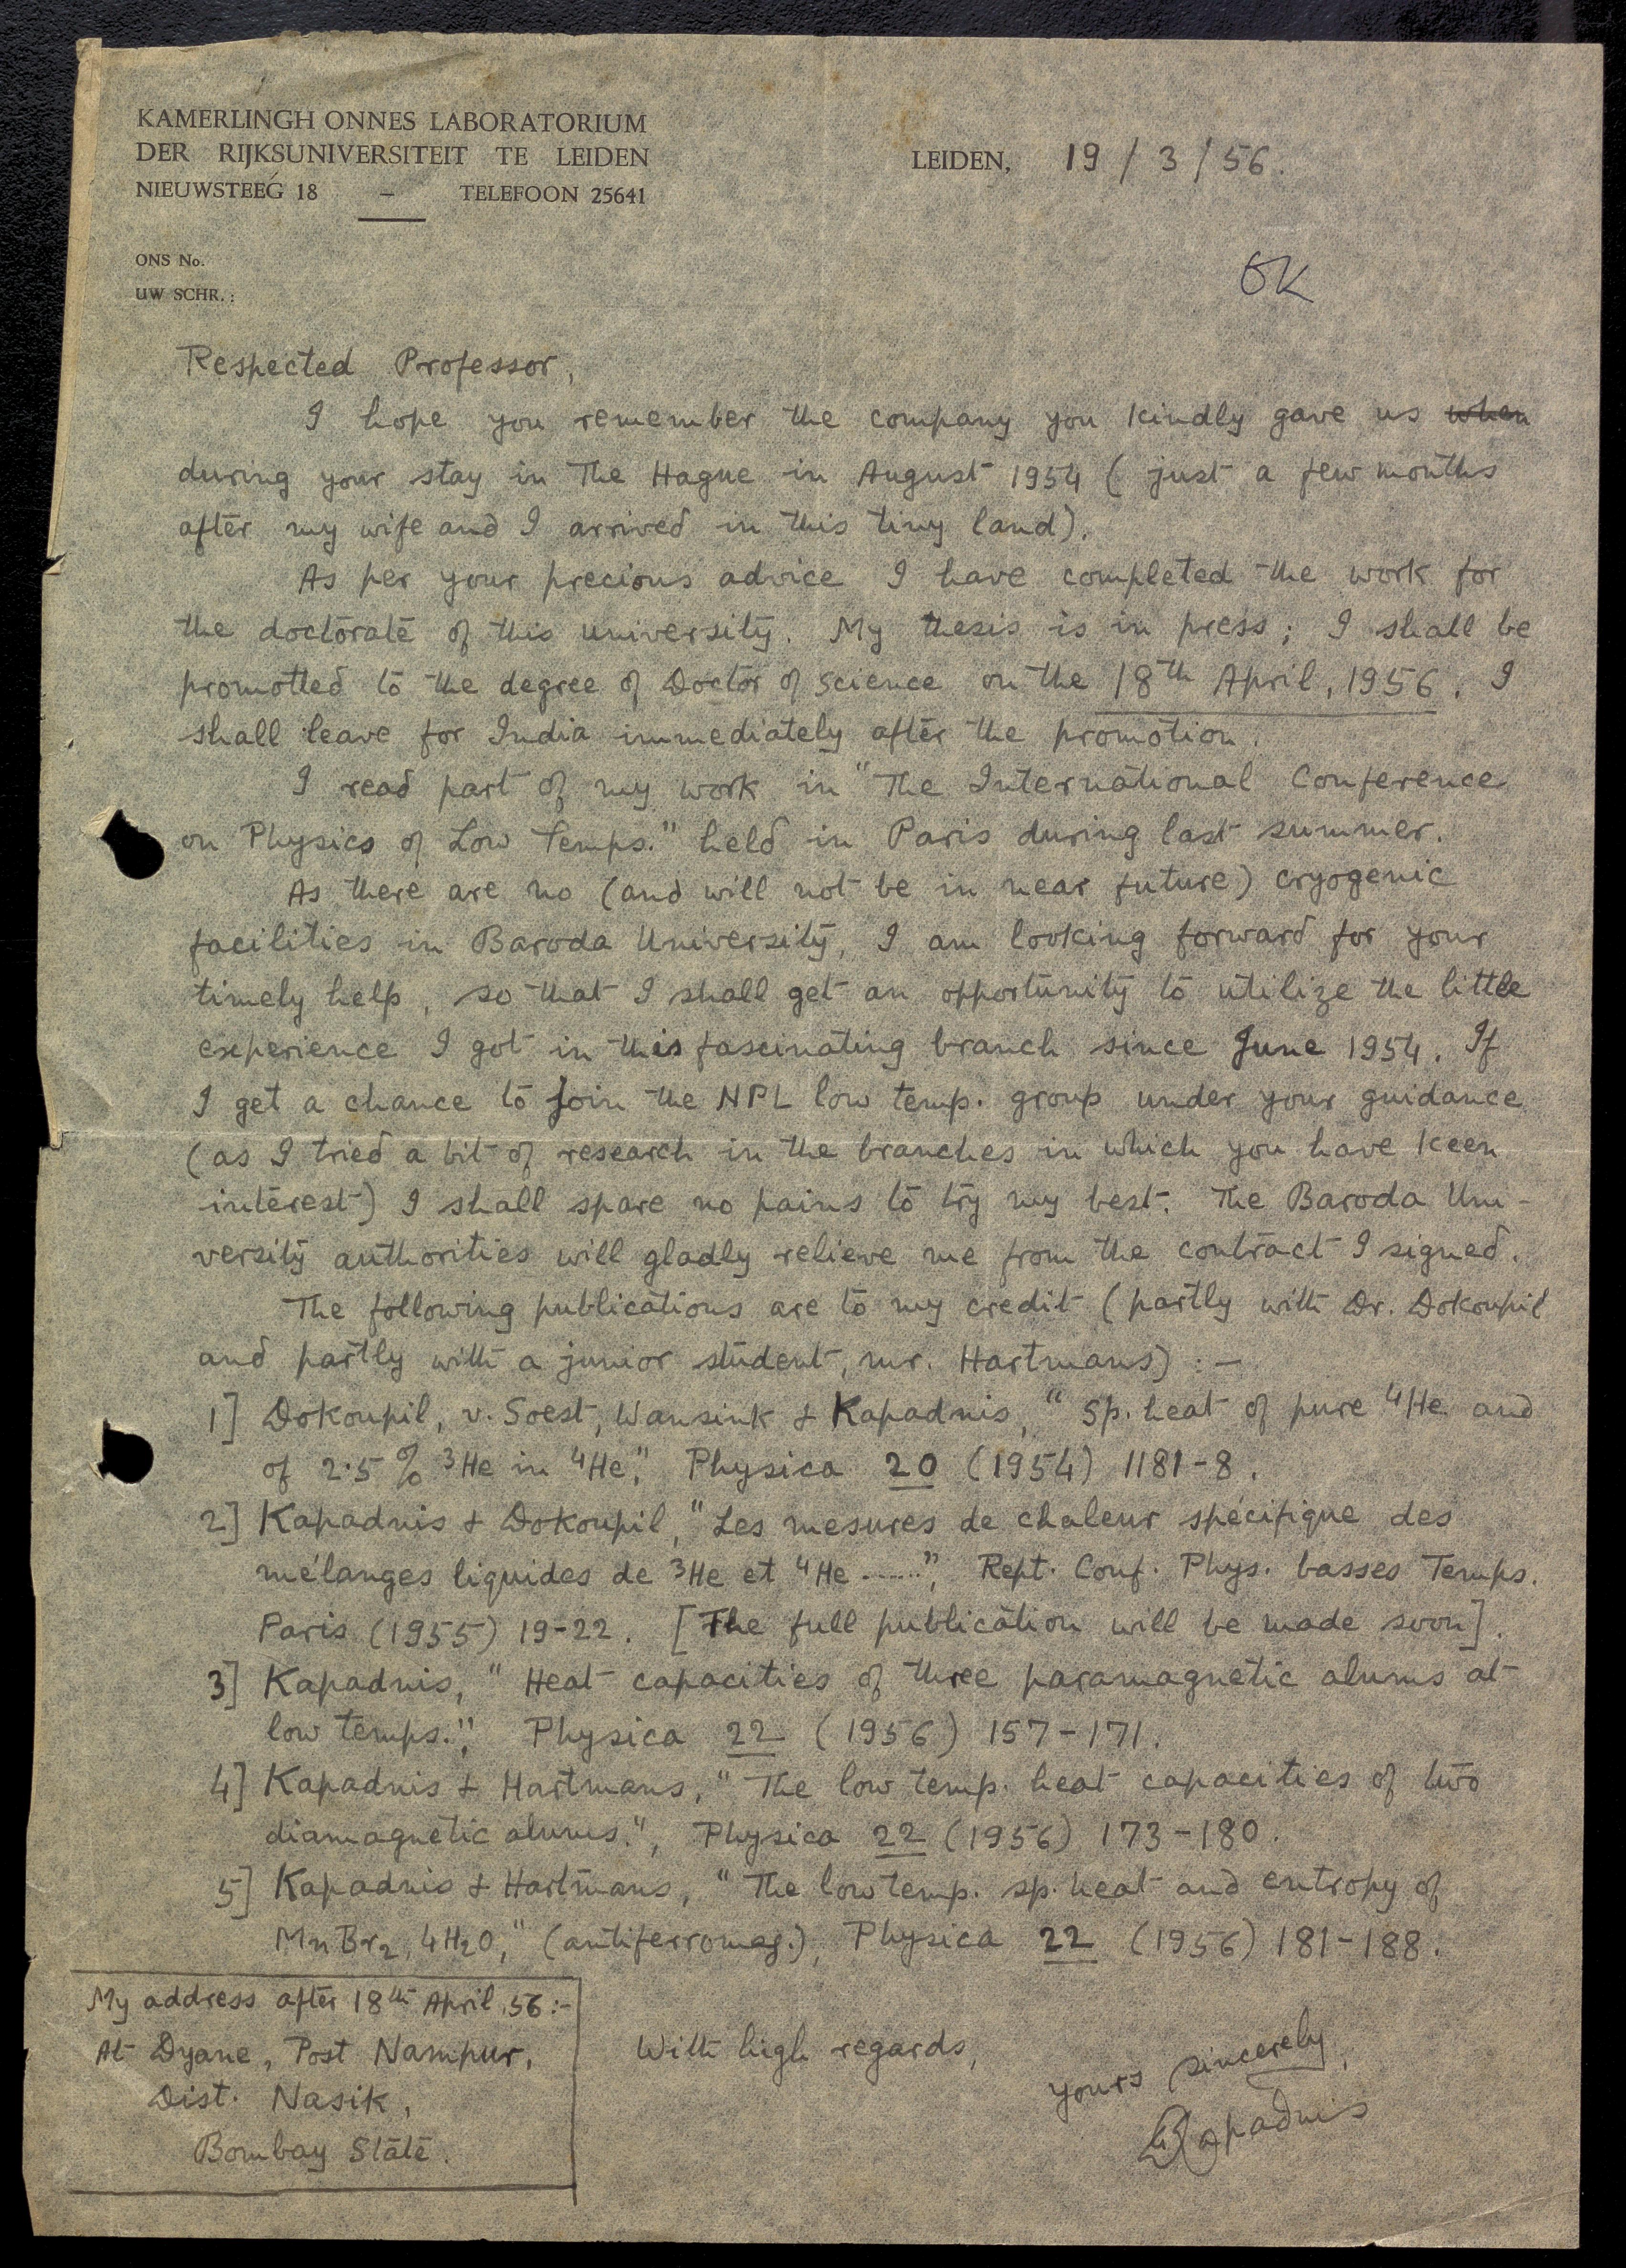 KAMERLINGH ONNES LABORATORIUM
DER RIJKSUNIVERSITEIT TE LEIDEN
NIEUWSTEEG 18 – TELEFOON 25641
LEIDEN, 19/3/56.
ONS No.
UW SCHR. :
OK
Respected Professor,
I hope you remember the company you kindly gave us when
during your stay in The Hague in August 1954 ( just a few months
after my wife and I arrived in this tiny land).
As per your precious advice I have completed the work for
the doctorate of this university. My thesis is in press; I shall be
promotted to the degree of Doctor of Science on the 18th April, 1956. I
shall leave for India immediately after the promotion.
I read part of my work in "The International Conference
on Physics of Low Temps." held in Paris during last summer.
As there are no (and will not be in near future) cryogenic
facilities in Baroda University, I am looking forward for your
timely help, so that I shall get an opportunity to utilize the little
experience I got in this fascinating branch since June 1954. If
I get a chance to join the NPL low temp. group under your guidance
(as I tried a bit of research in the branches in which you have keen
interest) I shall spare no pains to try my best. The Baroda Uni-
versity authorities will gladly relieve me from the contract I signed.
The following publications are to my credit (partly with Dr. Dokoupil
and partly with a junior student, mr. Hartmans) :—
1] Dokoupil, v. Soest, Wansink & Kapadnis, "Sp. heat of pure ⁴He and
of 2.5 % ³He in ⁴He", Physica 20 (1954) 1181-8.
2] Kapadnis & Dokoupil, "Les mesures de chaleur spécifique des
mélanges liquides de ³He et ⁴He ......", Rept. Conf. Phys. basses Temps.
Paris (1955) 19-22. [The full publication will be made soon].
3] Kapadnis, "Heat capacities of three paramagnetic alums at
low temps.", Physica 22 (1956) 157-171.
4] Kapadnis & Hartmans, "The low temp. heat capacities of two
diamagnetic alums.", Physica 22 (1956) 173-180.
5] Kapadnis & Hartmans, "The low temp. sp. heat and entropy of
MnBr₂, 4H₂O," (antiferromag.), Physica 22 (1956) 181-188.
My address after 18th April, 56:-
At Dyane, Post Nampur,
Dist. Nasik,
Bombay State.
With high regards,
yours sincerely,
Kapadnis